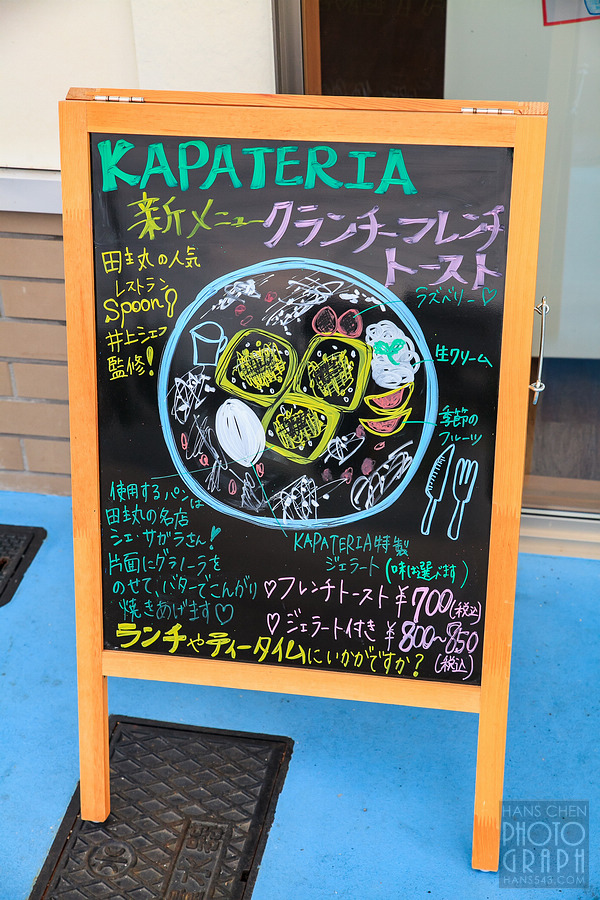 KAPATERIA
新メニュー クランチーフレンチ
トースト
田主丸の人気
レストラン
Spoonの
井上シェフ
監修!
ラズベリー♡
生クリーム
季節の
フルーツ
使用するパンは
田主丸の名店
シェ・サガラさん!
片面にグラノーラを
のせて、バターでこんがり
焼きあげます♡
KAPATERIA特製
ジェラート(味は選べます)
♡フレンチトースト ¥700(税込)
♡ジェラート付き ¥800~850
(税込)
ランチやティータイムにいかがですか?
HANS CHEN
PHOTO
GRAPH
HANS543.COM